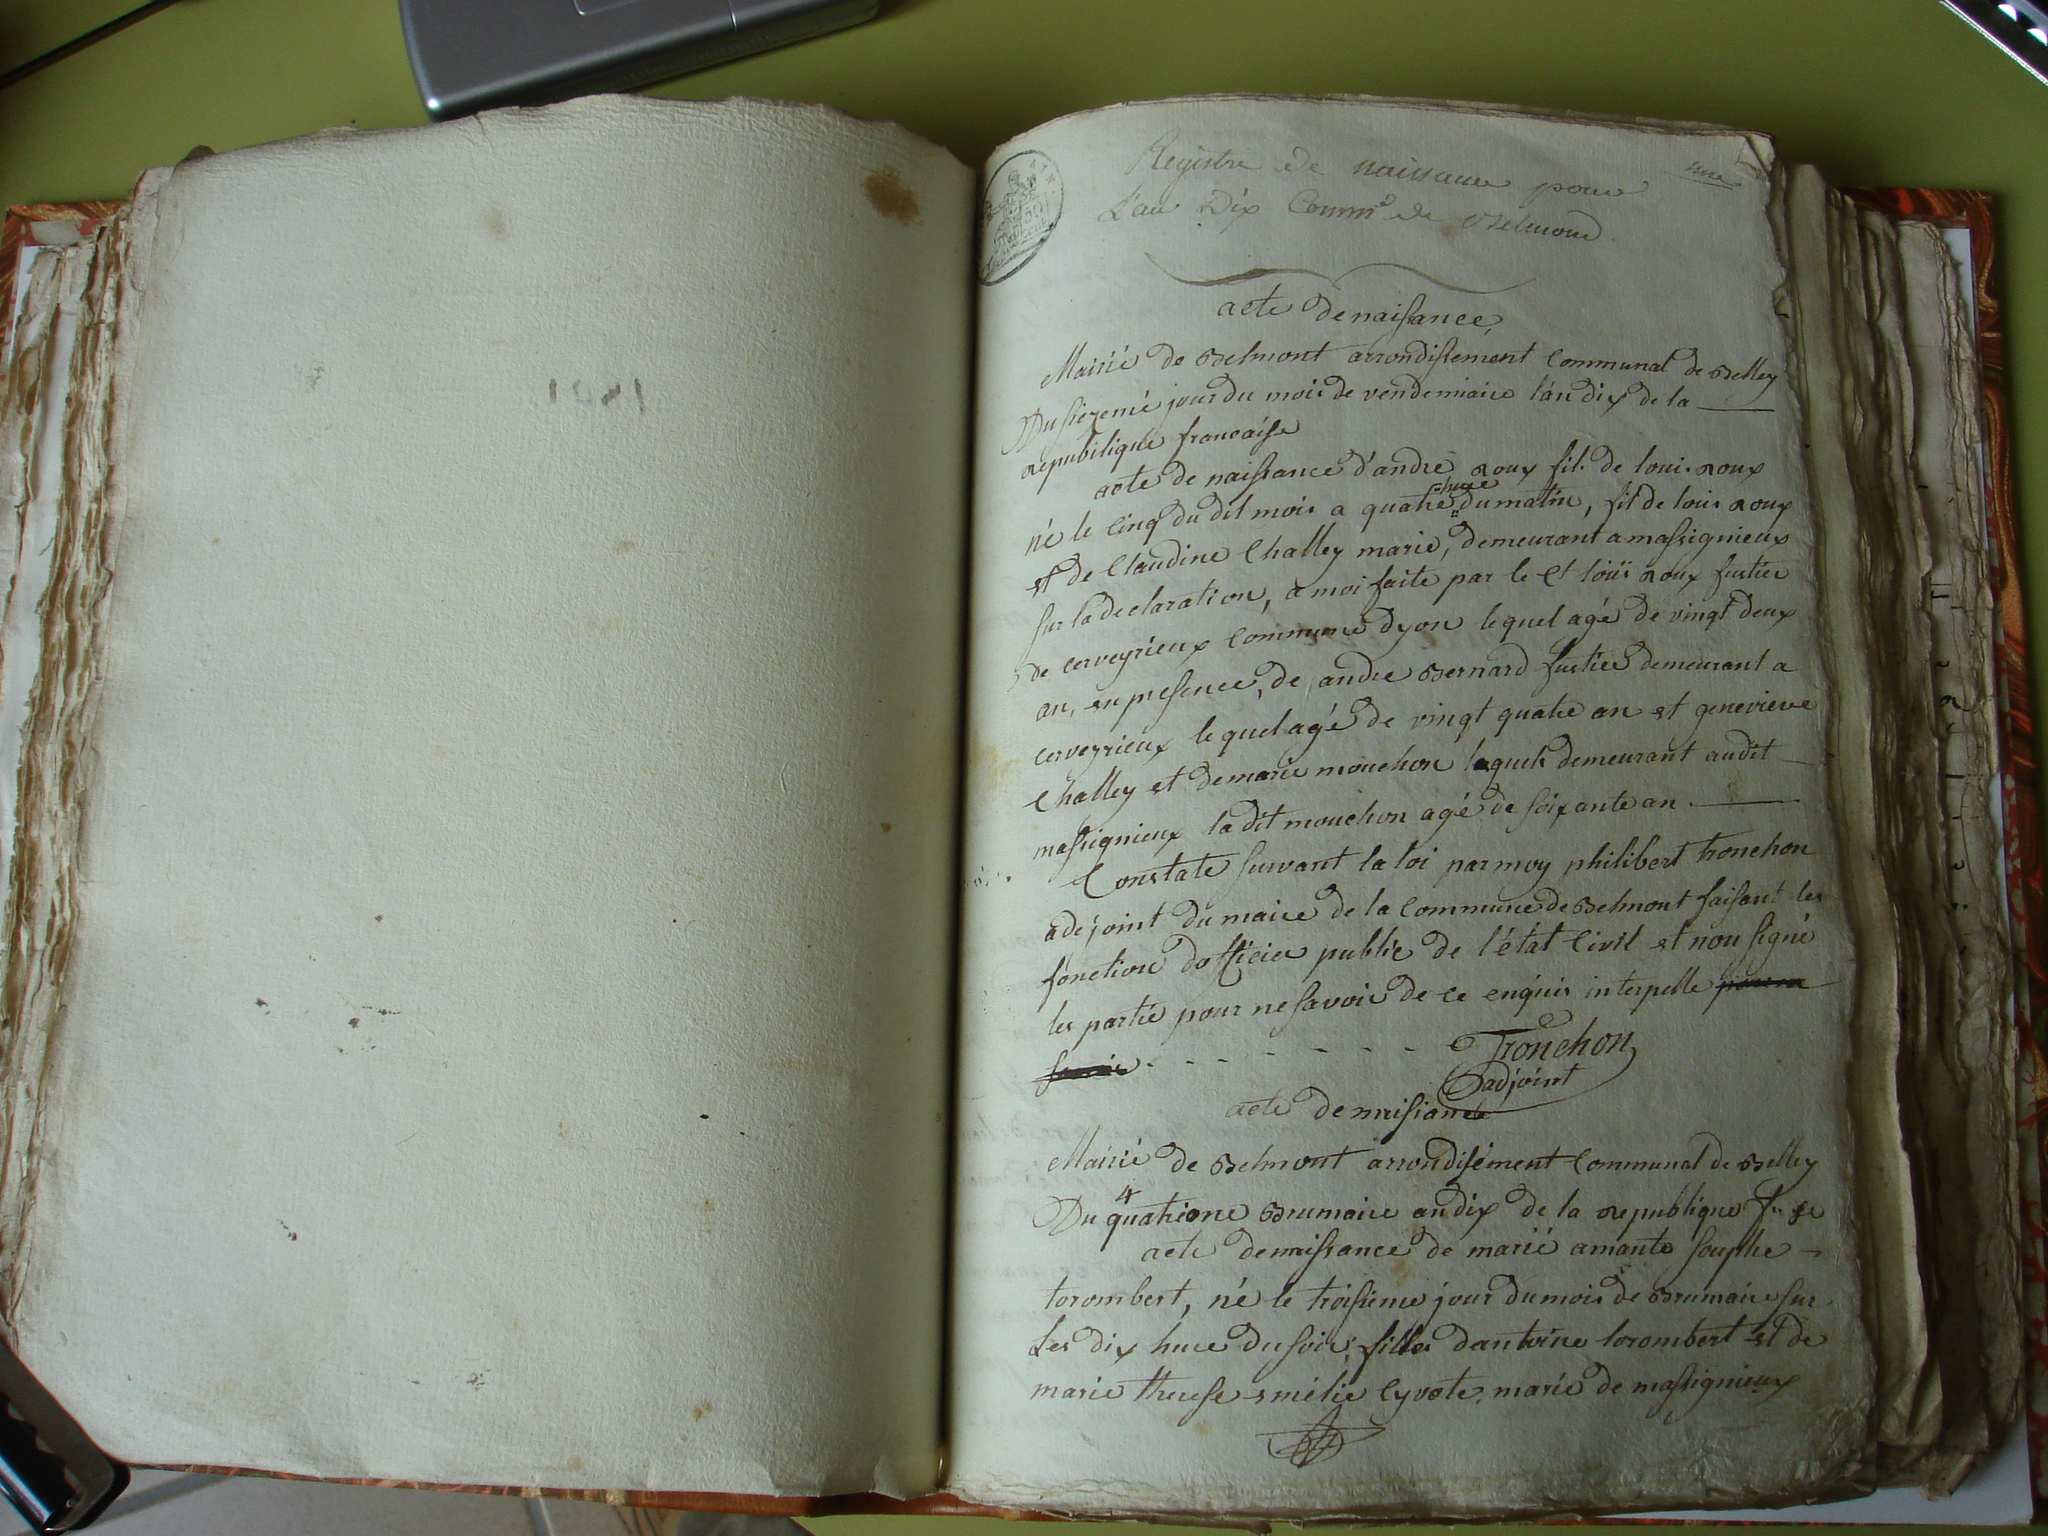 Registre de naissance pour
L'an Dix Comm.e de Belmond
acte de naissance
Mairie de Belmont arrondissement communal de Belley
Du siezeme jour du mois de vendemiaire l'an dix de la
republique francaise
acte de naissance d'andré roux fils de louis roux
né le cinq du dit mois a quatre hure du matin, fils de louis roux
et de Claudine Challey marié, demeurant a massignieux
sur la declaration, a moi faite par le Ct louïs roux fustier
de cerveyrieux commune dyon lequel agé de vingt deux
an, en presence, de andre Bernard fustier demeurant a
cerveyrieux lequel agé de vingt quatre an et genevieve
Challey et de marie mouchon lequels demeurant audit
massignieux la dit mouchon agé de soixante an.
Constate suivant la loi par moy philibert tronchon
adejoint du maire de la commune de Belmont faisant les
fonction d'officier public de l'état Civil et non signé
les partie pour ne savoir de ce enquis interpelle
Tronchon
adjoint
acte de naissance
Mairie de Belmont arrondisément communal de Belley
4
Du quatrieme Brumaire an dix de la republique f.. se
acte de naissance de marie amante souphe
torombert, né le troisieme jour du mois de Brumaire sur
Les dix hure du soir, filles d'antoine torombert et de
marie therese emélie Cyvote, marié de massignieux